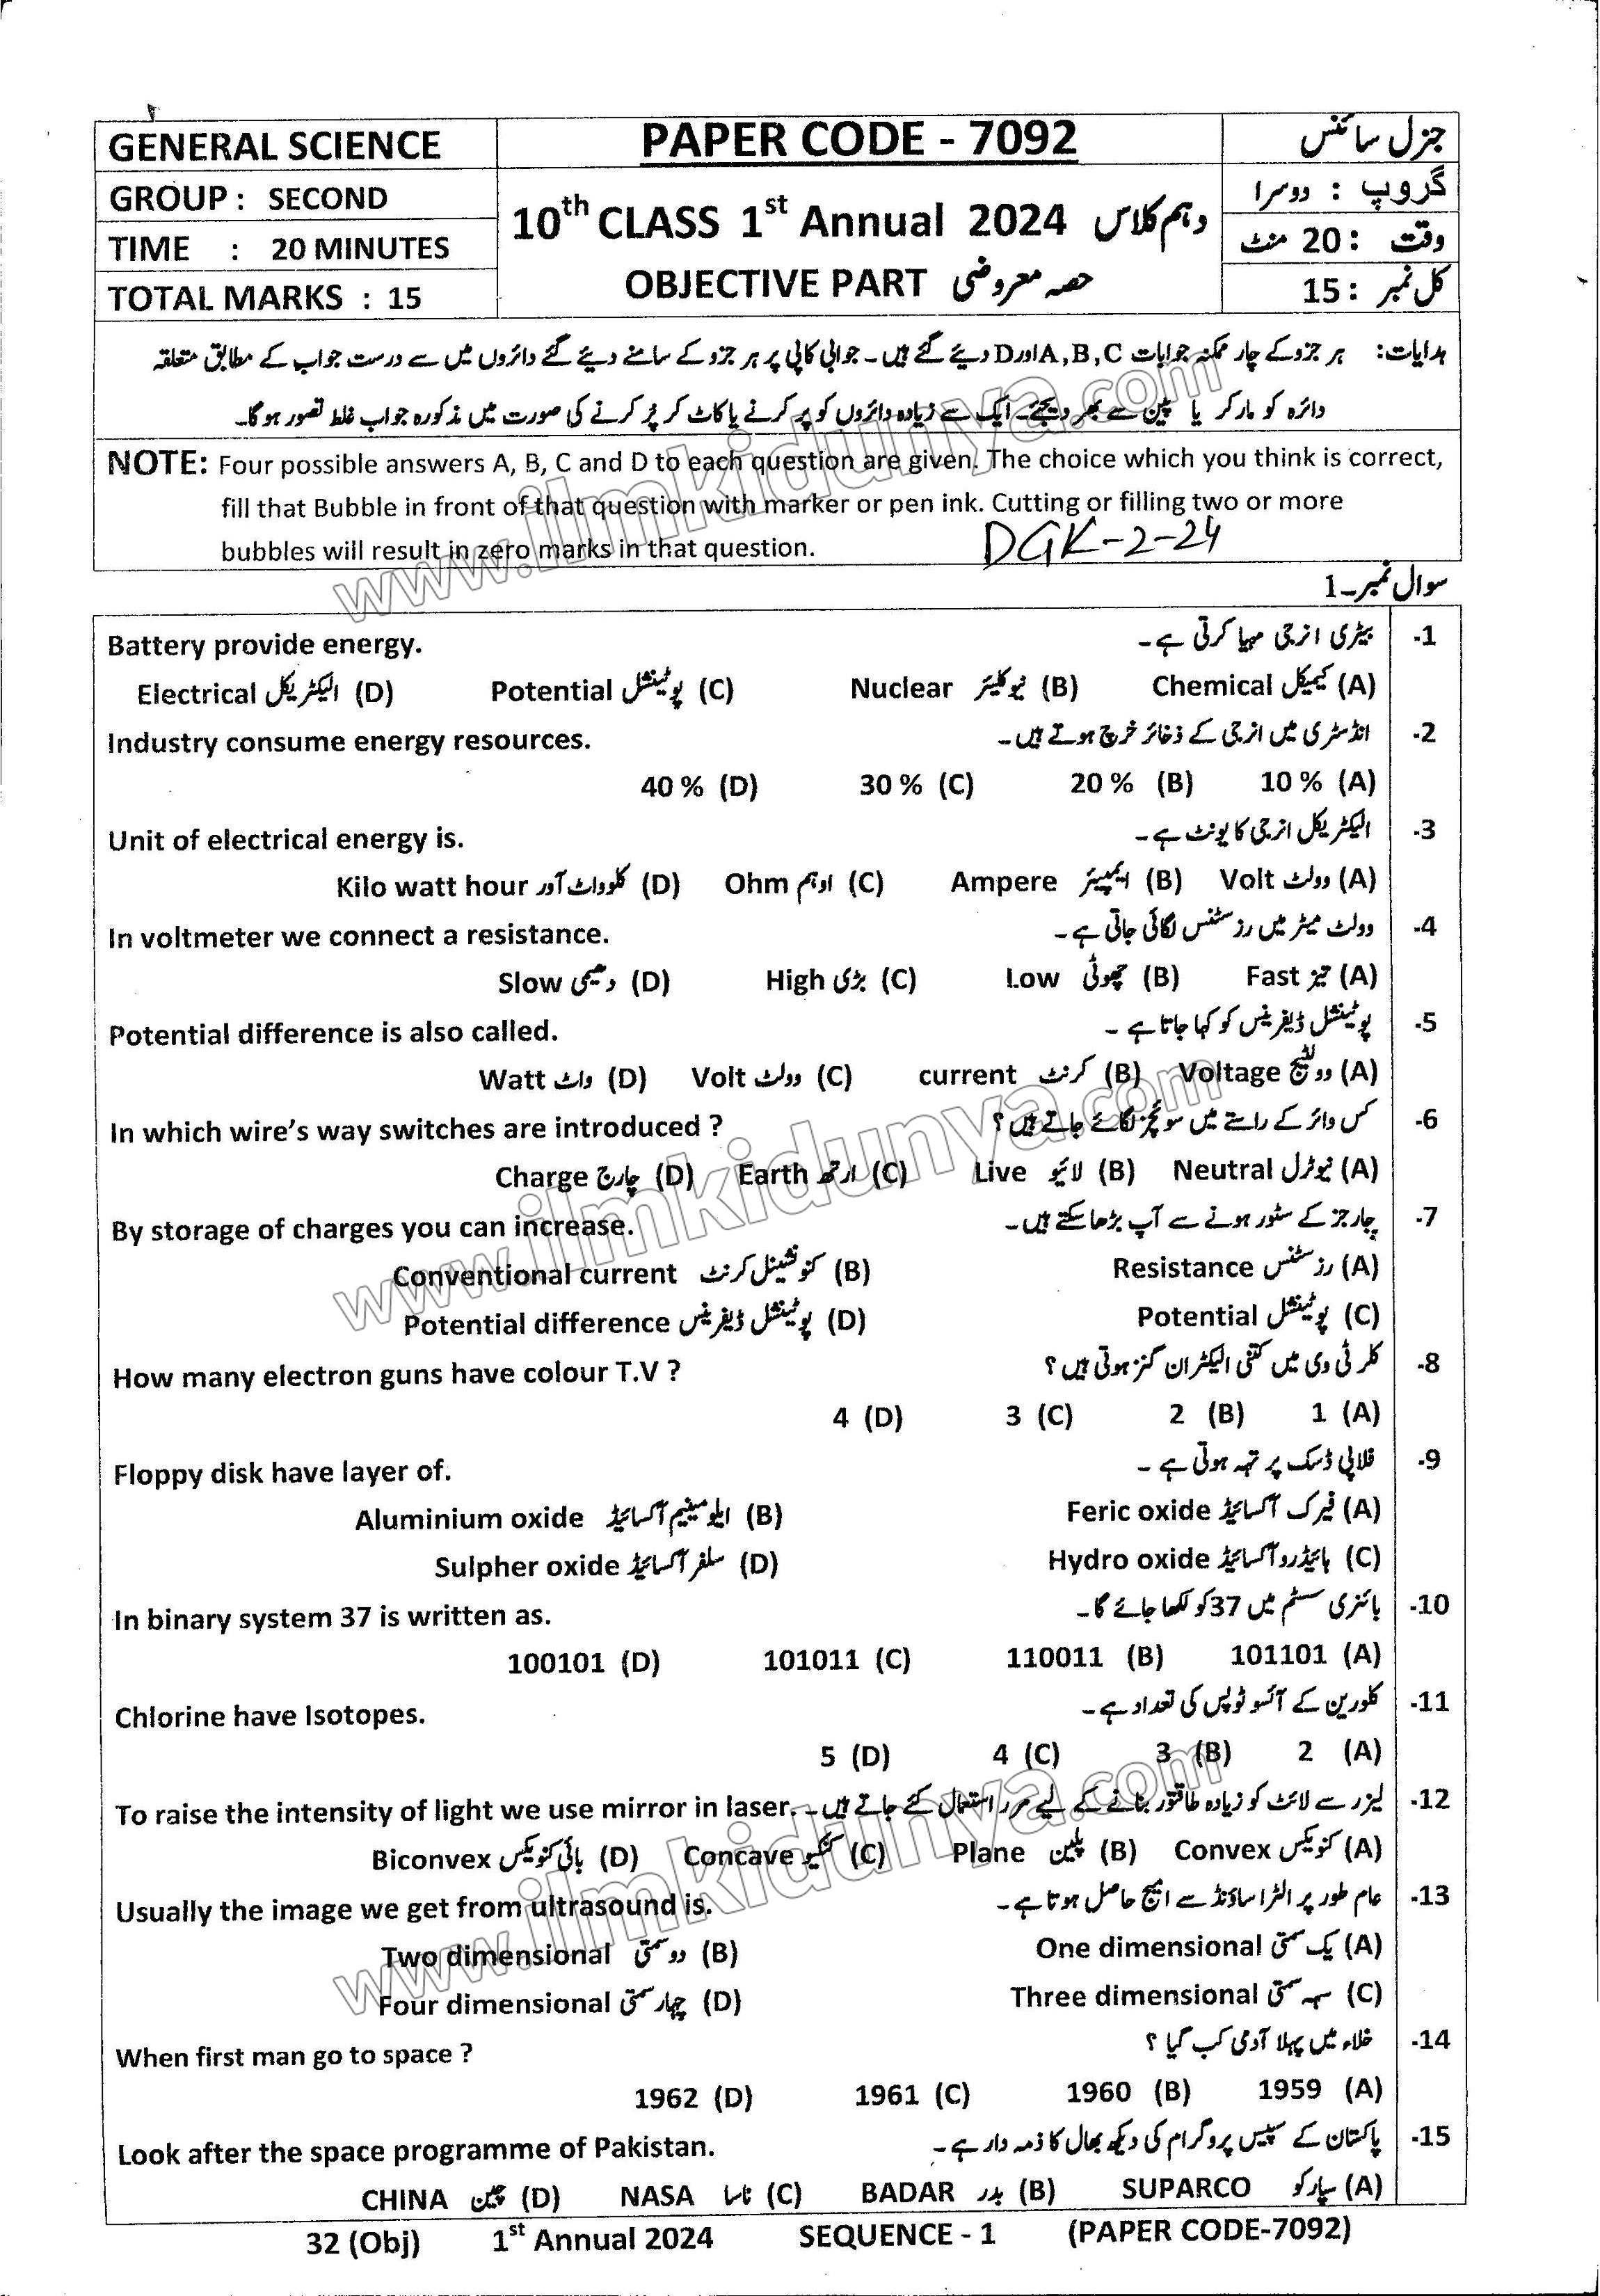 GENERAL SCIENCE
PAPER CODE - 7092
جنرل سائنس
GROUP : SECOND
گروپ : دوسرا
10th CLASS 1st Annual 2024 دہم کلاس
TIME : 20 MINUTES
وقت : 20 منٹ
OBJECTIVE PART حصہ معروضی
TOTAL MARKS : 15
کل نمبر : 15
ہدایات: ہر جزو کے چار ممکنہ جوابات A,B,C اور D دیئے گئے ہیں۔ جوابی کاپی پر ہر جزو کے سامنے دیئے گئے دائروں میں سے درست جواب کے مطابق متعلقہ
دائرہ کو مارکر یا پین سے بھر دیجئے۔ ایک سے زیادہ دائروں کو پر کرنے یا کاٹ کر پر کرنے کی صورت میں مذکورہ جواب غلط تصور ہوگا۔
NOTE: Four possible answers A, B, C and D to each question are given. The choice which you think is correct,
fill that Bubble in front of that question with marker or pen ink. Cutting or filling two or more
bubbles will result in zero marks in that question. DGK-2-24
سوال نمبر۔1
Battery provide energy. بیٹری انرجی مہیا کرتی ہے۔ -1
Electrical الیکٹریکل (D) Potential پوٹینشل (C) Nuclear نیوکلیئر (B) Chemical کیمیکل (A)
Industry consume energy resources. انڈسٹری میں انرجی کے ذخائر خرچ ہوتے ہیں۔ -2
40 % (D) 30 % (C) 20 % (B) 10 % (A)
Unit of electrical energy is. الیکٹریکل انرجی کا یونٹ ہے۔ -3
Kilo watt hour کلوواٹ آور (D) Ohm اوہم (C) Ampere ایمپیئر (B) Volt وولٹ (A)
In voltmeter we connect a resistance. وولٹ میٹر میں رزسٹنس لگائی جاتی ہے۔ -4
Slow دھیمی (D) High بڑی (C) Low چھوٹی (B) Fast تیز (A)
Potential difference is also called. پوٹینشل ڈیفرینس کو کہا جاتا ہے۔ -5
Watt واٹ (D) Volt وولٹ (C) current کرنٹ (B) Voltage وولٹیج (A)
In which wire's way switches are introduced ? کس وائر کے راستے میں سوئچز لگائے جاتے ہیں؟ -6
Charge چارج (D) Earth ارتھ (C) Live لائیو (B) Neutral نیوٹرل (A)
By storage of charges you can increase. چارجز کے سٹور ہونے سے آپ بڑھا سکتے ہیں۔ -7
Conventional current کنونشینل کرنٹ (B) Resistance رزسٹنس (A)
Potential difference پوٹینشل ڈیفرینس (D) Potential پوٹینشل (C)
How many electron guns have colour T.V ? کلر ٹی وی میں کتنی الیکٹران گنز ہوتی ہیں؟ -8
4 (D) 3 (C) 2 (B) 1 (A)
Floppy disk have layer of. فلاپی ڈسک پر تہہ ہوتی ہے۔ -9
Aluminium oxide ایلومینیم آکسائیڈ (B) Feric oxide فیرک آکسائیڈ (A)
Sulpher oxide سلفر آکسائیڈ (D) Hydro oxide ہائیڈرو آکسائیڈ (C)
In binary system 37 is written as. بائنری سسٹم میں 37 کو لکھا جائے گا۔ -10
100101 (D) 101011 (C) 110011 (B) 101101 (A)
Chlorine have Isotopes. کلورین کے آئسوٹوپس کی تعداد ہے۔ -11
5 (D) 4 (C) 3 (B) 2 (A)
To raise the intensity of light we use mirror in laser. لیزر سے لائٹ کو زیادہ طاقتور بنانے کے لیے مرر استعمال کئے جاتے ہیں۔ -12
Biconvex بائی کنویکس (D) Concave کنکیو (C) Plane پلین (B) Convex کنویکس (A)
Usually the image we get from ultrasound is. عام طور پر الٹراساؤنڈ سے امیج حاصل ہوتا ہے۔ -13
Two dimensional دو سمتی (B) One dimensional یک سمتی (A)
Four dimensional چہار سمتی (D) Three dimensional سہہ سمتی (C)
When first man go to space ? خلاء میں پہلا آدمی کب گیا ؟ -14
1962 (D) 1961 (C) 1960 (B) 1959 (A)
Look after the space programme of Pakistan. پاکستان کے سپیس پروگرام کی دیکھ بھال کا ذمہ دار ہے۔ -15
CHINA چین (D) NASA ناسا (C) BADAR بدر (B) SUPARCO سپارکو (A)
32 (Obj) 1st Annual 2024 SEQUENCE - 1 (PAPER CODE-7092)
www.ilmkidunya.com
www.ilmkidunya.com
www.ilmkidunya.com